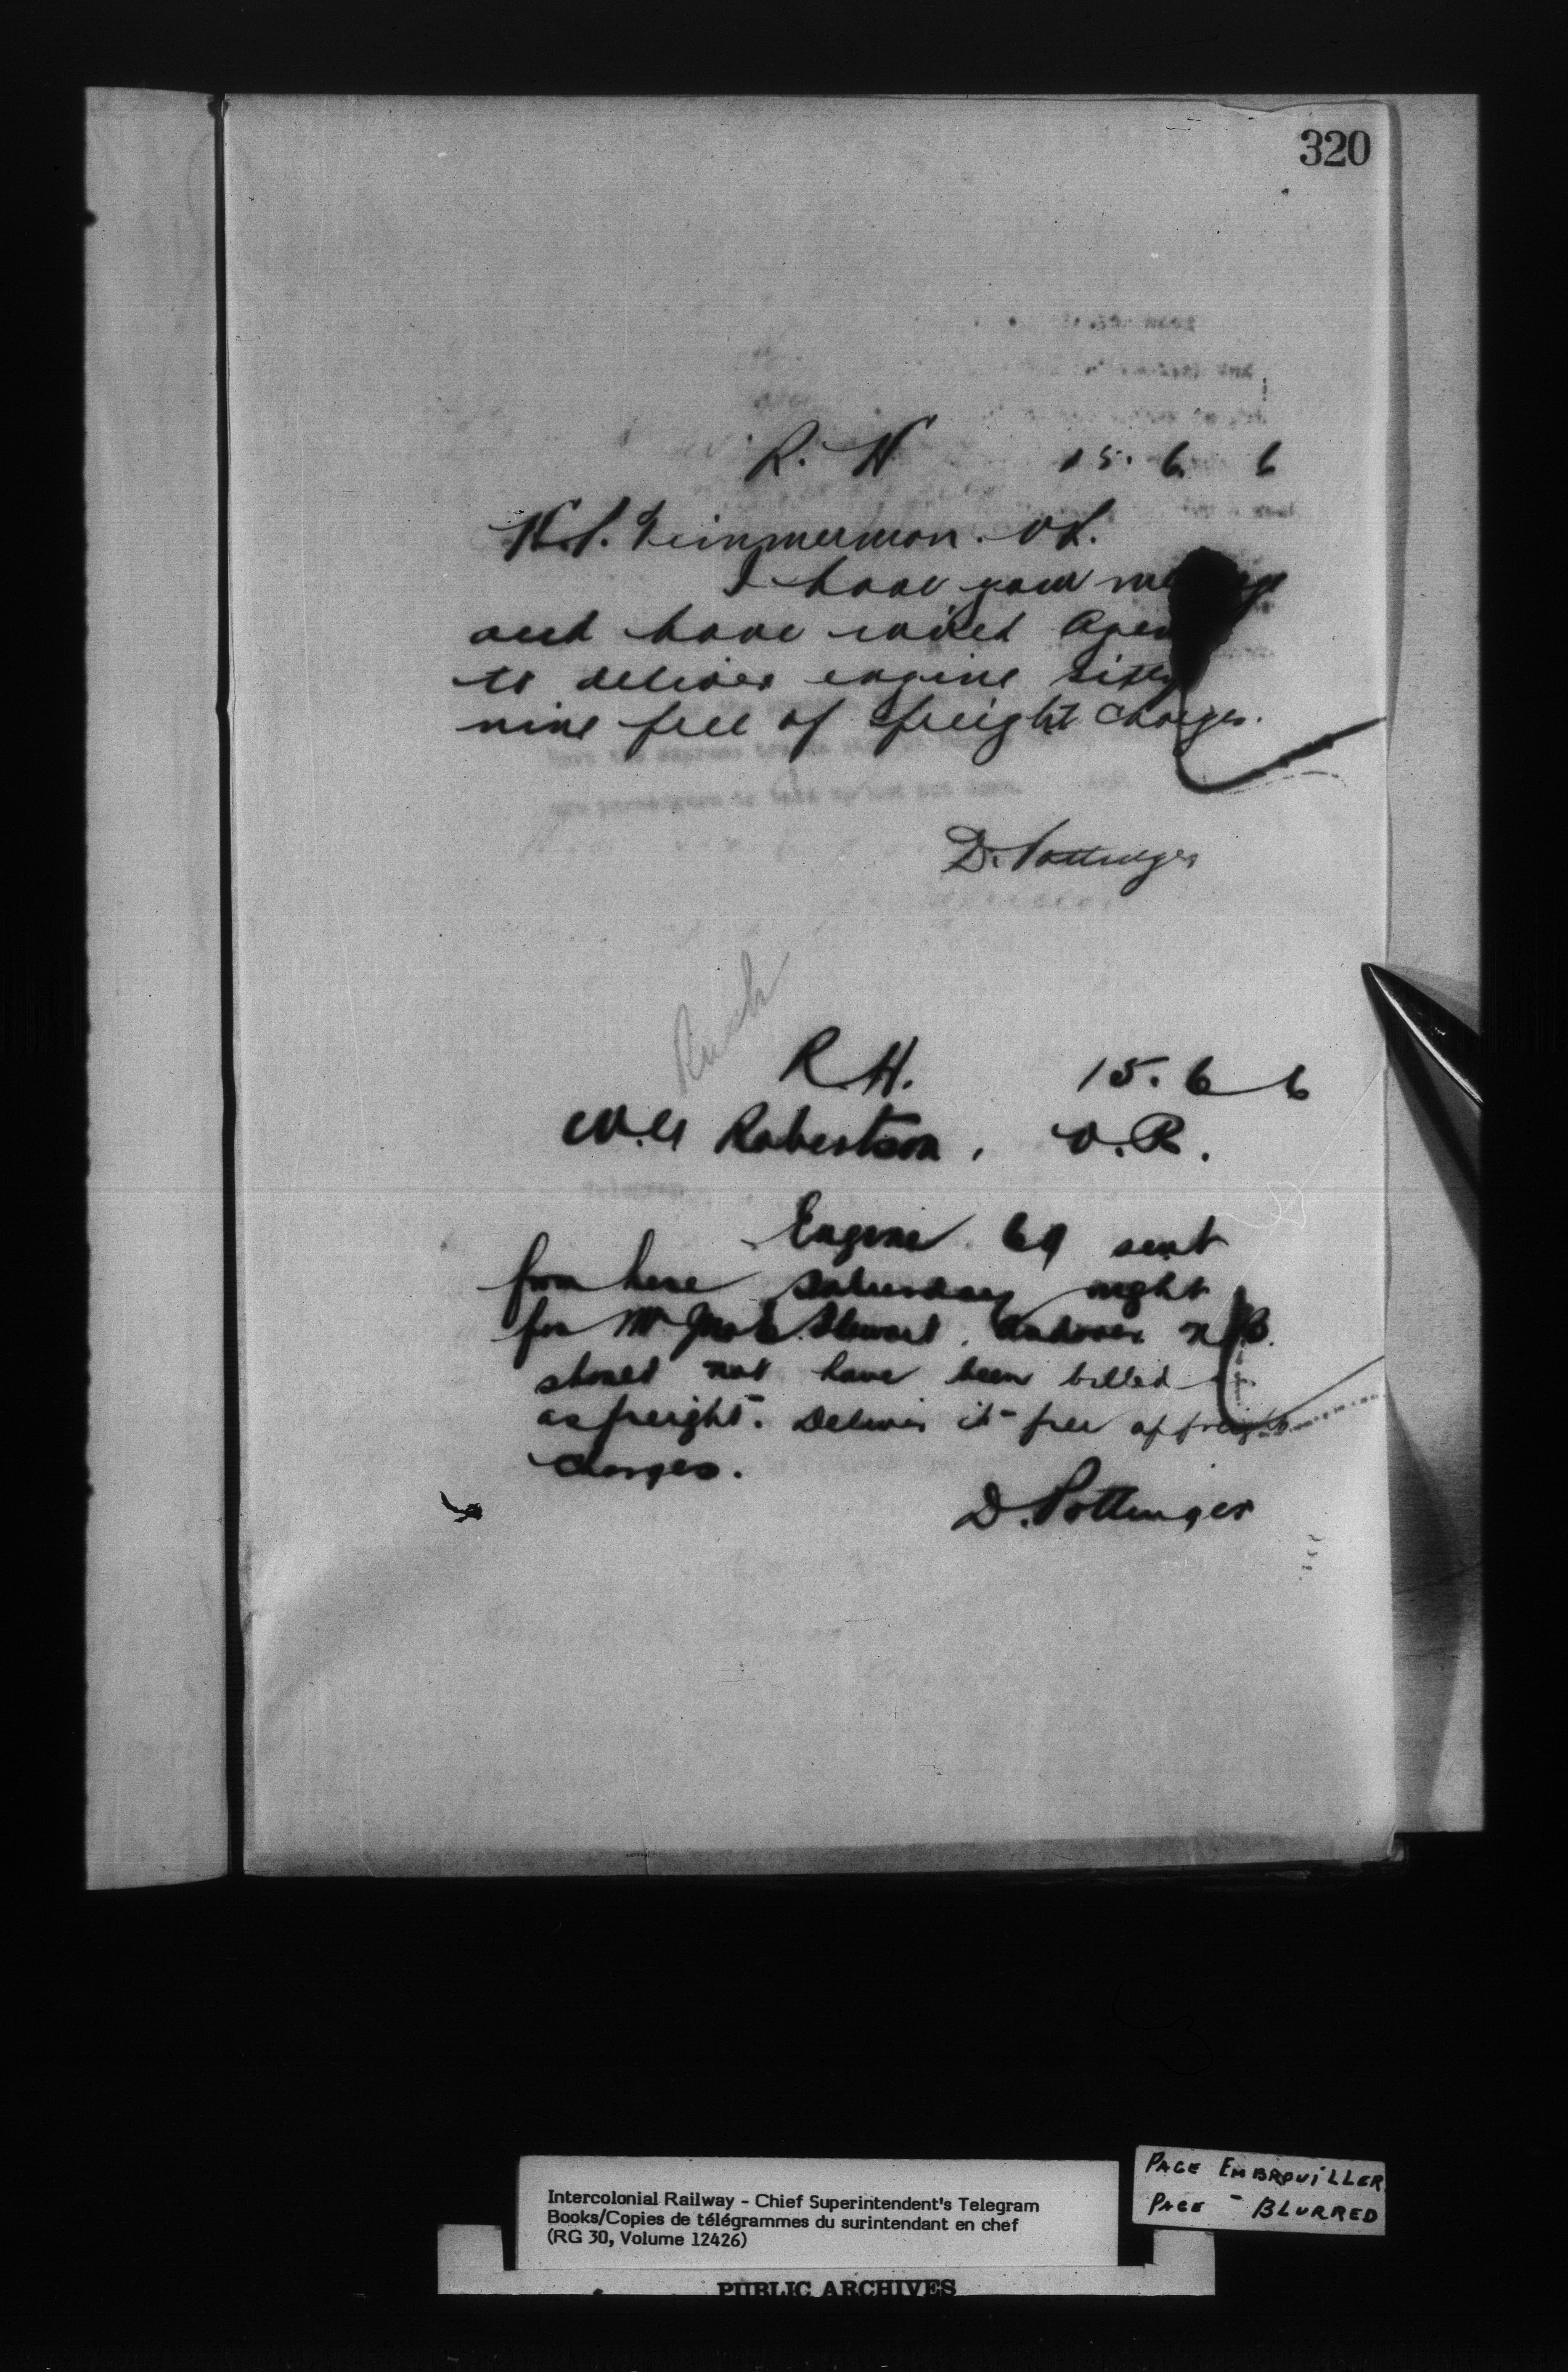 320
R. H 15. 6. 6
I have your
and have wired
to deliver engine sixty
nine free of freight charges.
D. Pottinger
Rush
R.H. 15. 6 6
Robertson,
Engine 69 sent
from here Saturday night
for Mr Stewart. Andover N.B.
should not have been billed
as freight. Deliver it free of freight
charges.
D. Pottinger
Intercolonial Railway - Chief Superintendent's Telegram
Books/Copies de télégrammes du surintendant en chef
(RG 30, Volume 12426)
PAGE EMBROUILLER
PAGE - BLURRED
PUBLIC ARCHIVES